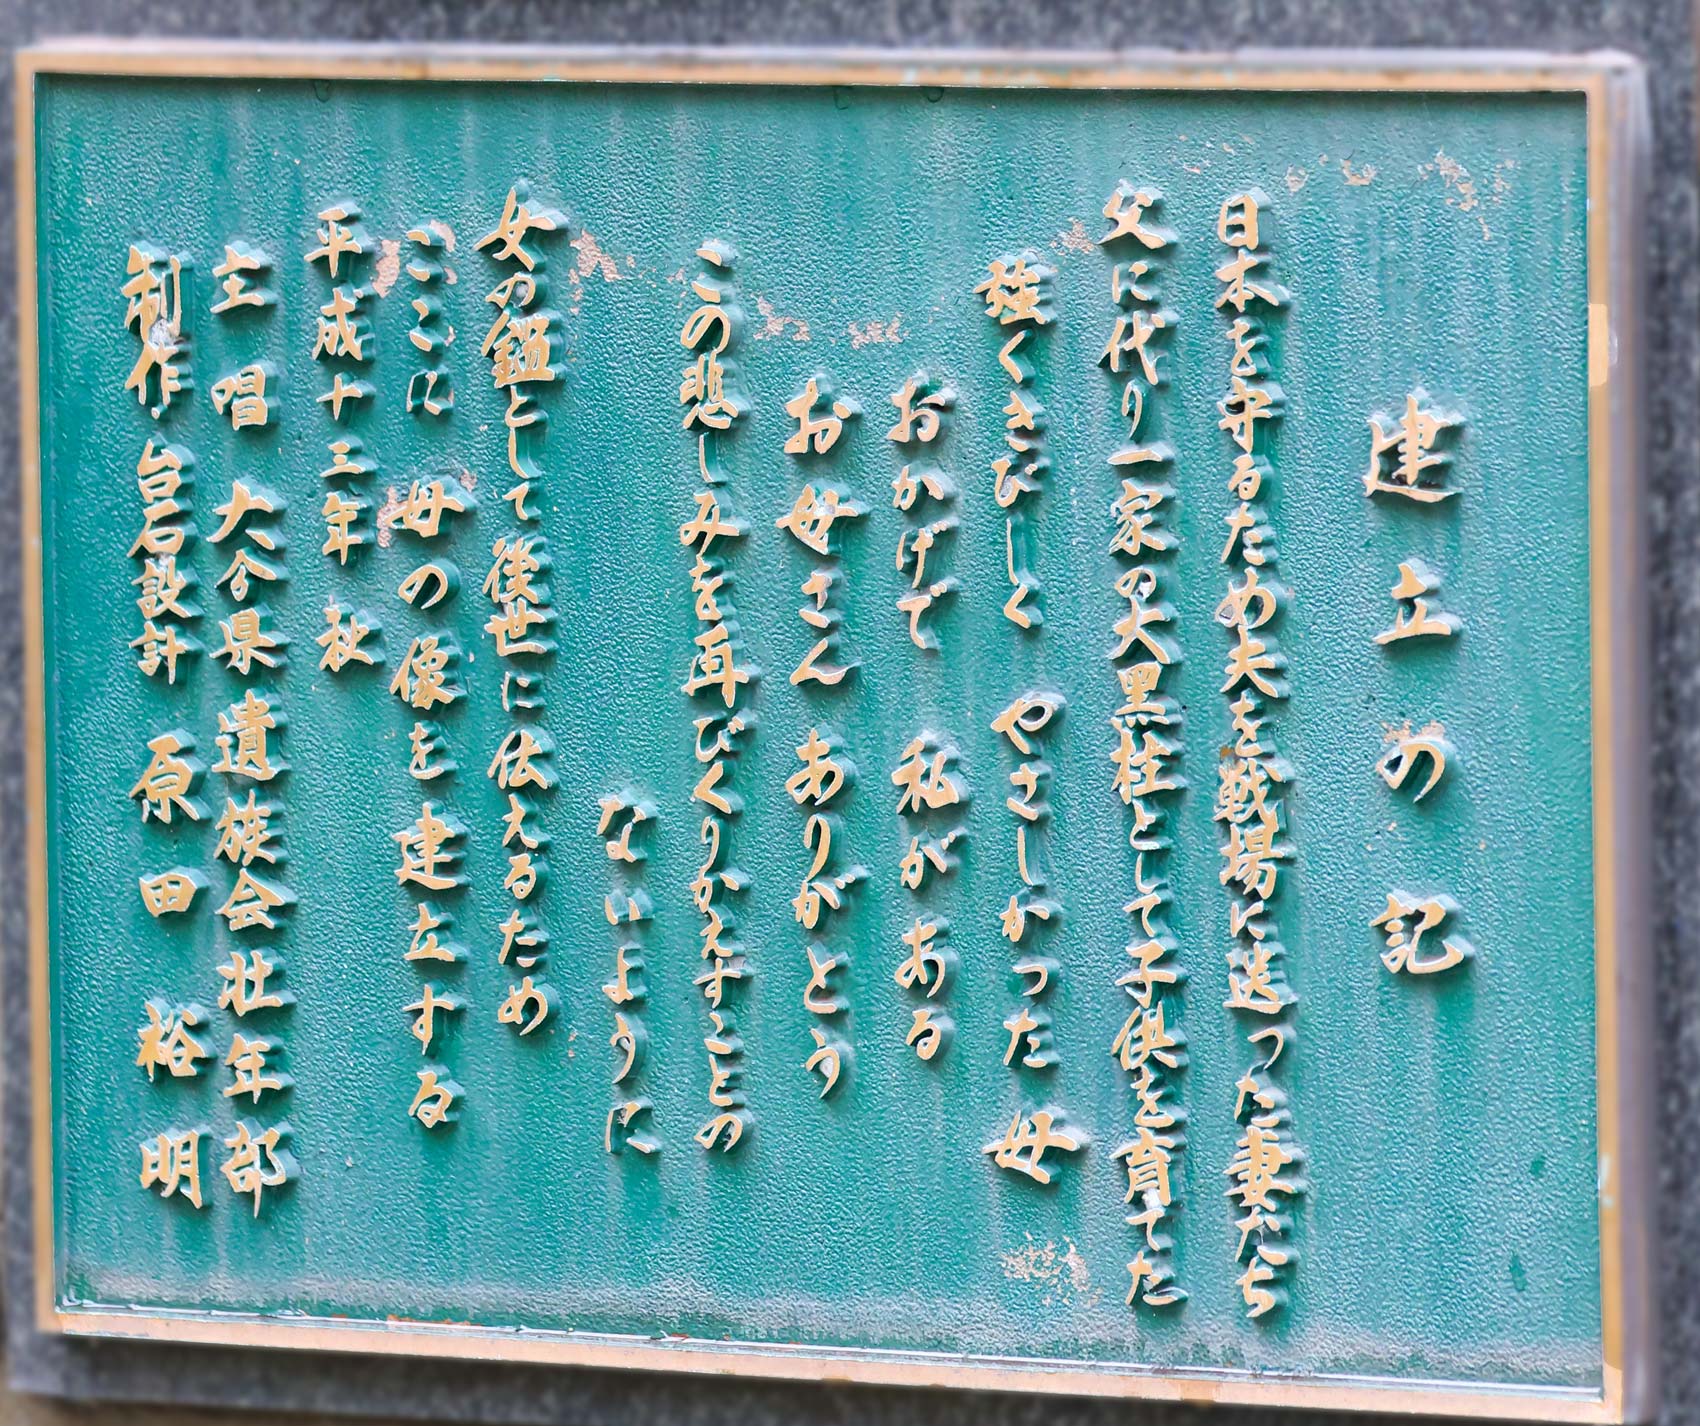 建立の記
日本を守るため夫を戦場に送った妻たち
父に代り一家の大黒柱として子供を育てた
強くきびしく やさしかった 母
おかげで 私が ある
お母さん ありがとう
この悲しみを再びくりかえすことの
ないように
女の鑑として後世に伝えるため
ここに 母の像を建立する
平成十三年 秋
主唱 大分県遺族会壮年部
制作・台石設計 原田裕明